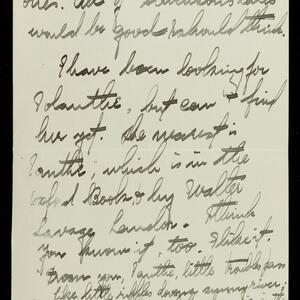 ones. All of
would be good I should think.
I have been looking for
Iolanthe, but can't find
her yet. The nearest is
"Ianthe", which is in the
Oxford Book & by Walter
Savage Landor. I think
you know it, too. I like it.
From you, Ianthe, little troubles pass
like little ripples down a sunny river;